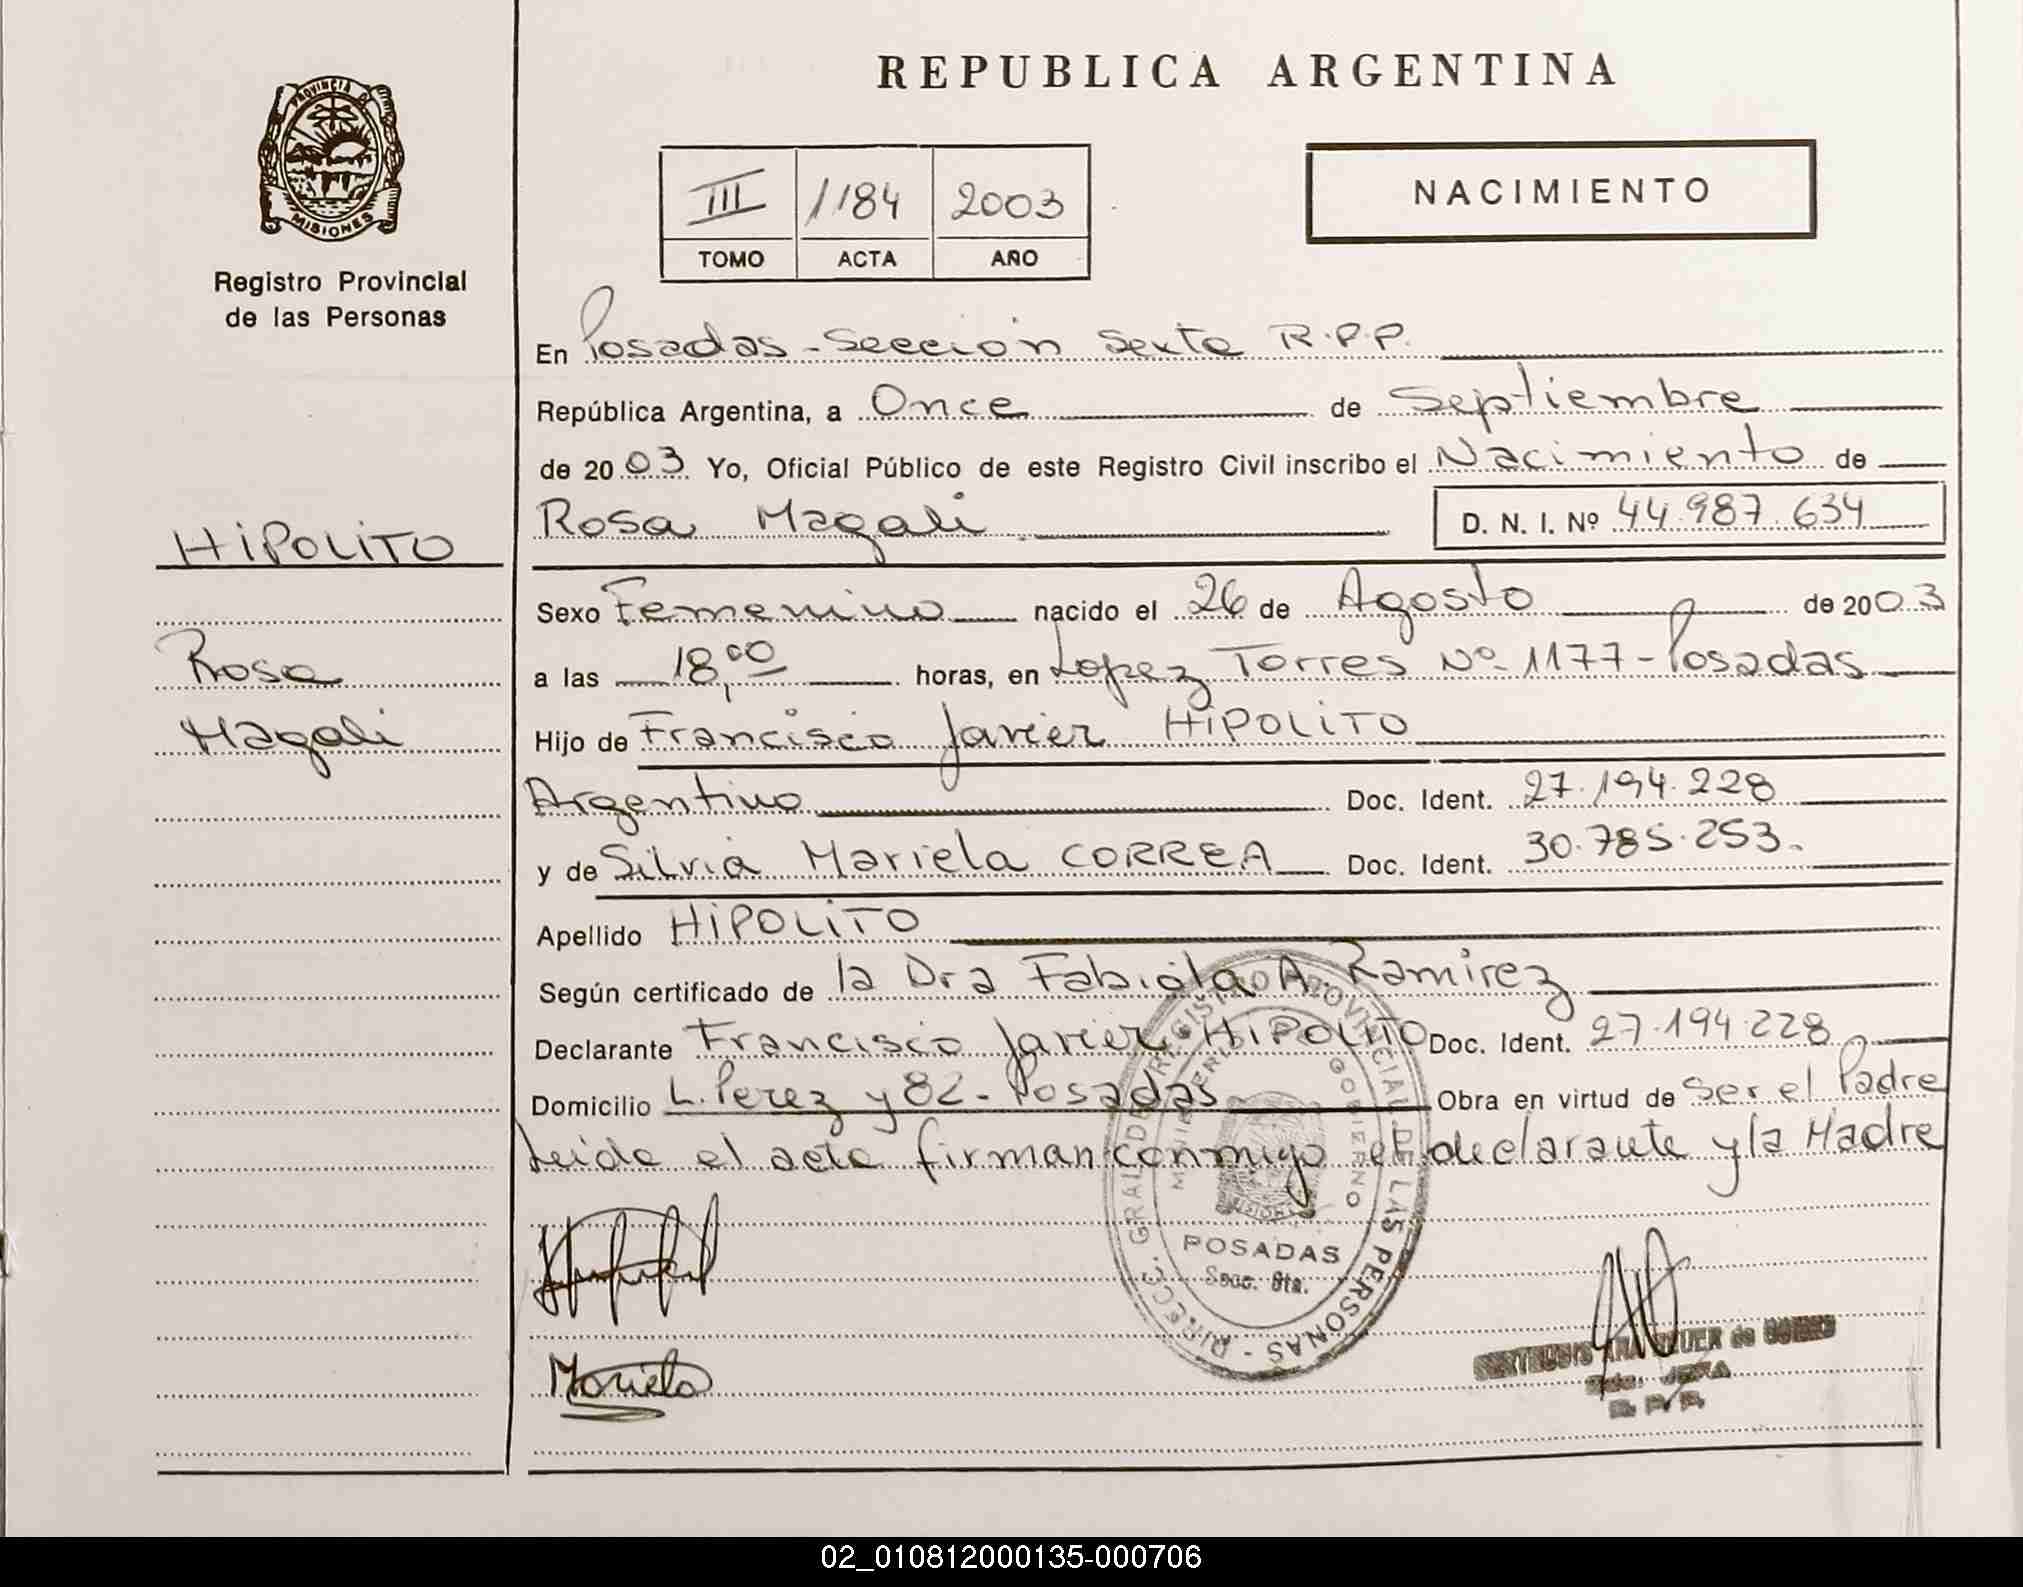 REPUBLICA ARGENTINA
PROVINCIA D
MISIONES
Registro Provincial
de las Personas
III 1184 2003
TOMO ACTA AÑO
NACIMIENTO
En Posadas - Sección Sexta R.P.P.
República Argentina, a Once de Septiembre
de 2003 Yo, Oficial Público de este Registro Civil inscribo el Nacimiento de
Rosa Magali D. N. I. Nº 44.987.634
HIPOLITO
Rosa
Magali
Sexo Femenino nacido el 26 de Agosto de 2003
a las 18,00 horas, en Lopez Torres Nº 1177 - Posadas
Hijo de Francisco Javier HIPOLITO
Argentino Doc. Ident. 27.194.228
y de Silvia Mariela CORREA Doc. Ident. 30.785.253.
Apellido HIPOLITO
Según certificado de la Dra Fabiola A. Ramirez
Declarante Francisco Javier HIPOLITO Doc. Ident. 27.194.228
Domicilio L. Perez y 82 - Posadas Obra en virtud de Ser el Padre
Leida el acta firman conmigo el declarante y la Madre
DIRECC. GRAL DE REGISTRO PROVINCIAL DE LAS PERSONAS -
GOBIERNO
POSADAS
Secc. 6ta.
Mariela
de
JEFA
R. P. P.
02_010812000135-000706